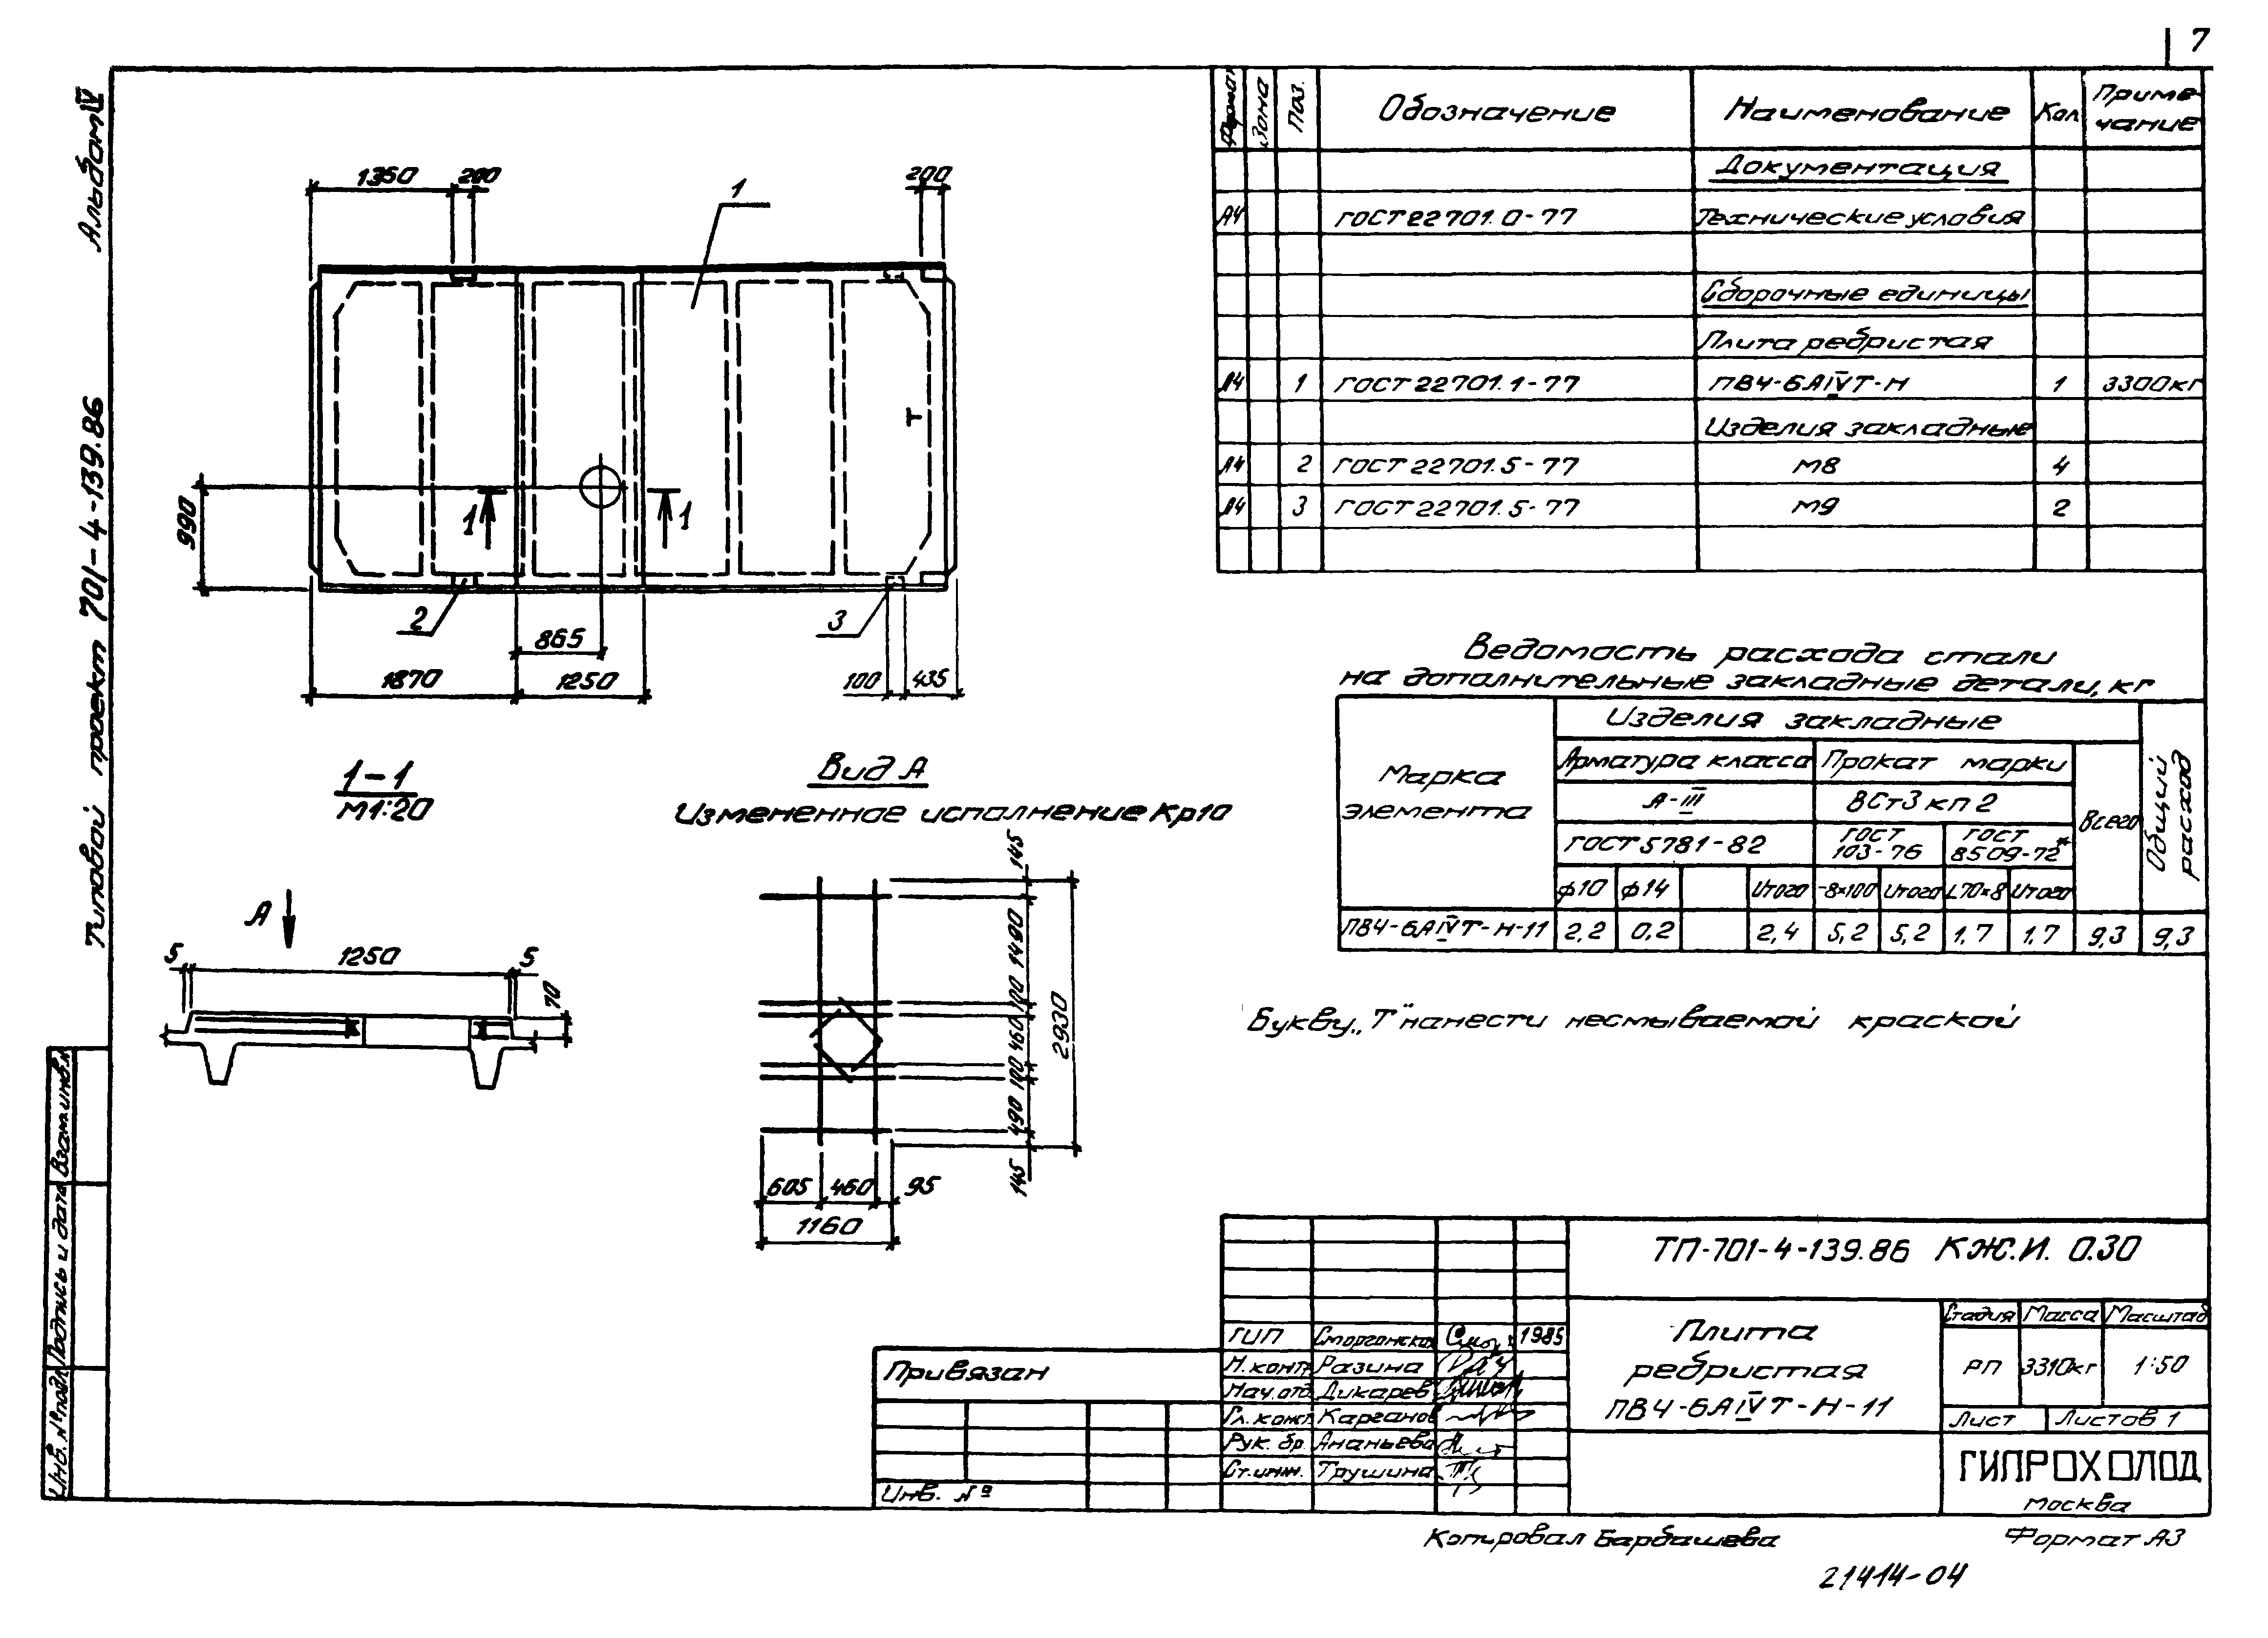 7
Альбом IV
Типовой проект 701-4-139.86
Инв. № подл.
Подпись и дата
Взам. инв. №
1350
200
200
1
Т
990
1
1
2
3
865
1870
1250
100
435
1-1
М1:20
А
5
1250
5
70
Вид А
Измененное исполнение Кр10
145
1490
100
460
100
490
145
2930
605
460
95
1160
Формат
Зона
Поз.
Обозначение
Наименование
Кол
Приме-
чание
Документация
А4 ГОСТ 22701.0-77 Технические условия
Сборочные единицы
Плита ребристая
А4 1 ГОСТ 22701.1-77 ПВЧ-6АIVТ-Н 1 3300кг
Изделия закладные
А4 2 ГОСТ 22701.5-77 М8 4
А4 3 ГОСТ 22701.5-77 М9 2
Ведомость расхода стали
на дополнительные закладные детали, кг
Марка
элемента
Изделия закладные
Общий
расход
Арматура класса
Прокат марки
Всего
А-III
ВСт3 кп 2
ГОСТ 5781-82
ГОСТ
103-76
ГОСТ
8509-72*
ф10 ф14 Итого -8×100 Итого L70×8 Итого
ПВЧ-6АIVТ-Н-11 2,2 0,2 2,4 5,2 5,2 1,7 1,7 9,3 9,3
Букву „Т" нанести несмываемой краской
ТП-701-4-139.86 КЖ.И. 0.30
Плита
ребристая
ПВЧ-6АIVТ-Н-11
Стадия Масса Масштаб
РП 3310кг 1:50
Лист Листов 1
ГИПРОХОЛОД
Москва
ГИП Сморгонская 1985
Н.контр. Разина
Нач.отд. Дикарев
Гл.конст. Карганов
Рук. бр. Ананьева
Ст.инж. Трушина
Привязан
Инв. №
Копировал Барбашева
Формат А3
21414-04